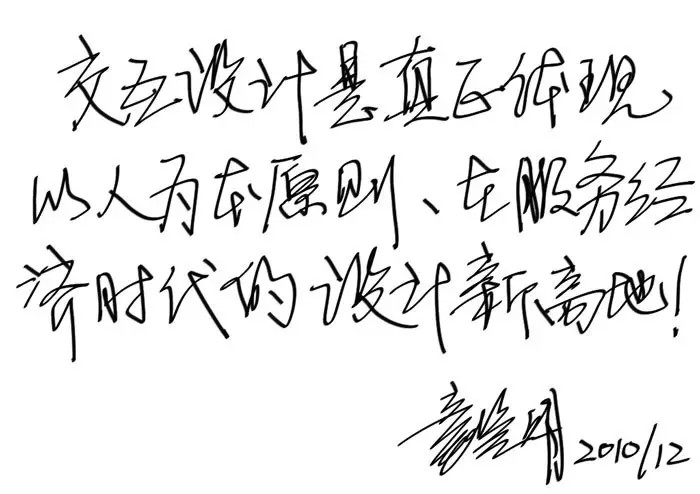 交互设计是真正体现
以人为本原则、在服务经
济时代的设计新高地!
2010/12